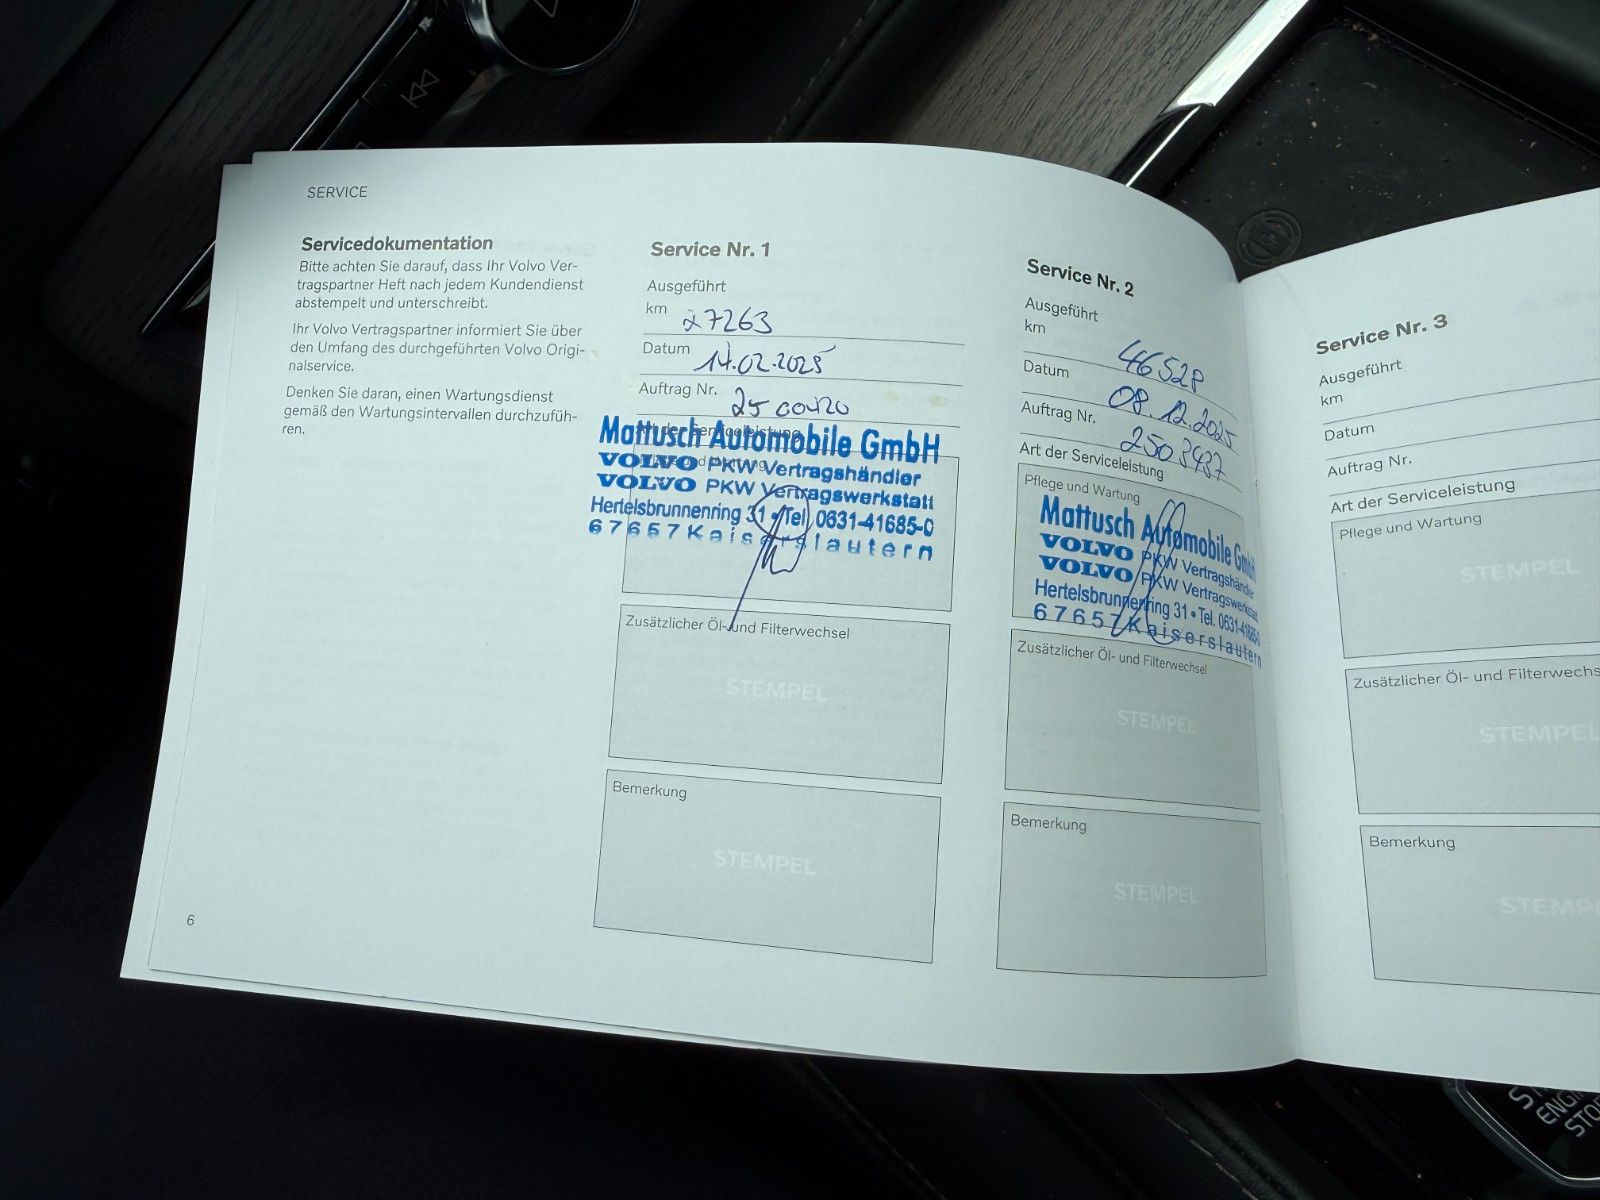 SERVICE
Servicedokumentation
Bitte achten Sie darauf, dass Ihr Volvo Ver-
tragspartner Heft nach jedem Kundendienst
abstempelt und unterschreibt.
Ihr Volvo Vertragspartner informiert Sie über
den Umfang des durchgeführten Volvo Origi-
nalservice.
Denken Sie daran, einen Wartungsdienst
gemäß den Wartungsintervallen durchzufüh-
ren.
6
Service Nr. 1
Ausgeführt
km 27263
Datum 14.02.2025
Auftrag Nr.
Art der Serviceleistung
Pflege und Wartung
Mattusch Automobile GmbH
VOLVO PKW Vertragshändler
VOLVO PKW Vertragswerkstatt
Hertelsbrunnenring 31 • Tel. 0631-41685-0
67657 Kaiserslautern
Zusätzlicher Öl- und Filterwechsel
STEMPEL
Bemerkung
STEMPEL
Service Nr. 2
Ausgeführt
km
Datum 08.12.2025
Auftrag Nr. 2503437
Art der Serviceleistung
Pflege und Wartung
Mattusch Automobile GmbH
VOLVO PKW Vertragshändler
VOLVO PKW Vertragswerkstatt
Hertelsbrunnenring 31 • Tel. 0631-41685-0
67657 Kaiserslautern
Zusätzlicher Öl- und Filterwechsel
STEMPEL
Bemerkung
STEMPEL
Service Nr. 3
Ausgeführt
km
Datum
Auftrag Nr.
Art der Serviceleistung
Pflege und Wartung
STEMPEL
Zusätzlicher Öl- und Filterwechs
STEMPEL
Bemerkung
STEMP